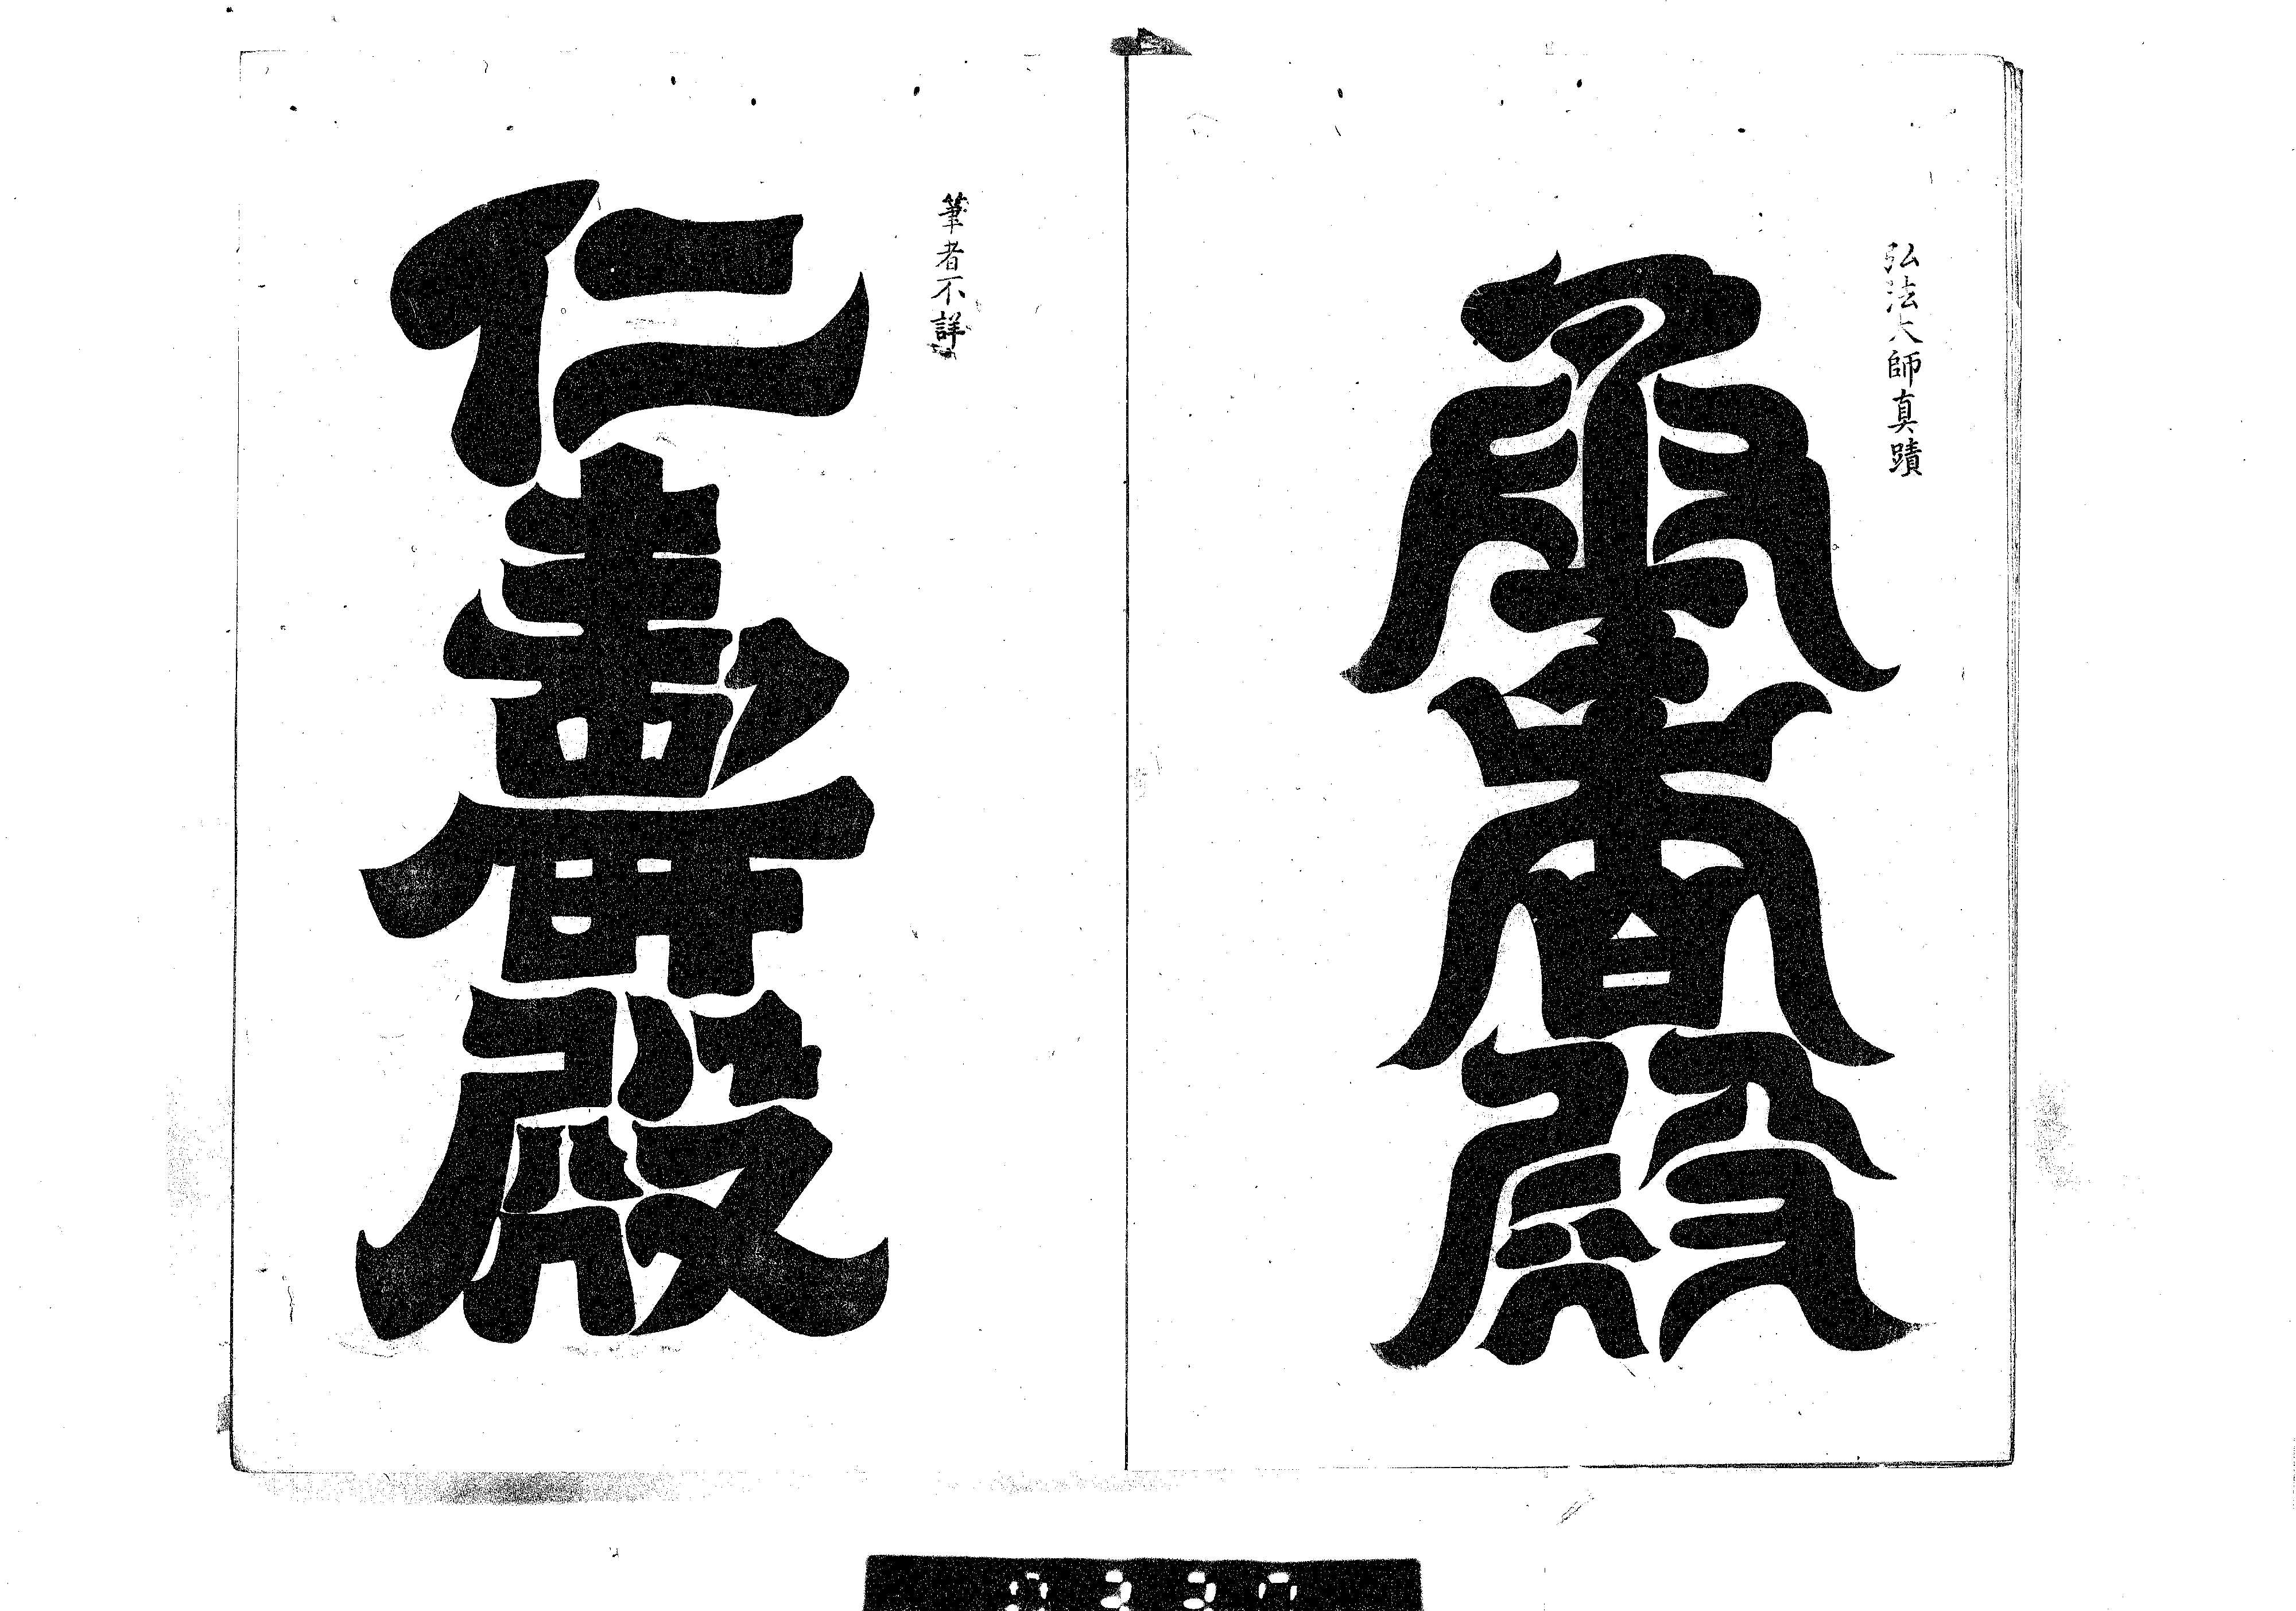 弘法大師真蹟
承香殿
筆者不詳
仁壽殿